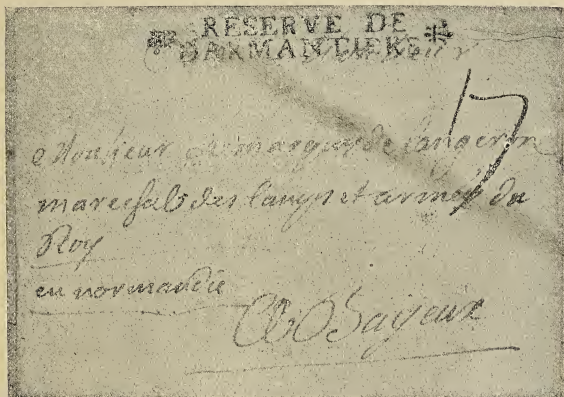 RESERVE DE
DARMANTIERS
17
a Monsieur
le marquis de Langeron
marechal des camps et armés du
Roy
en normandie
a Bayeux